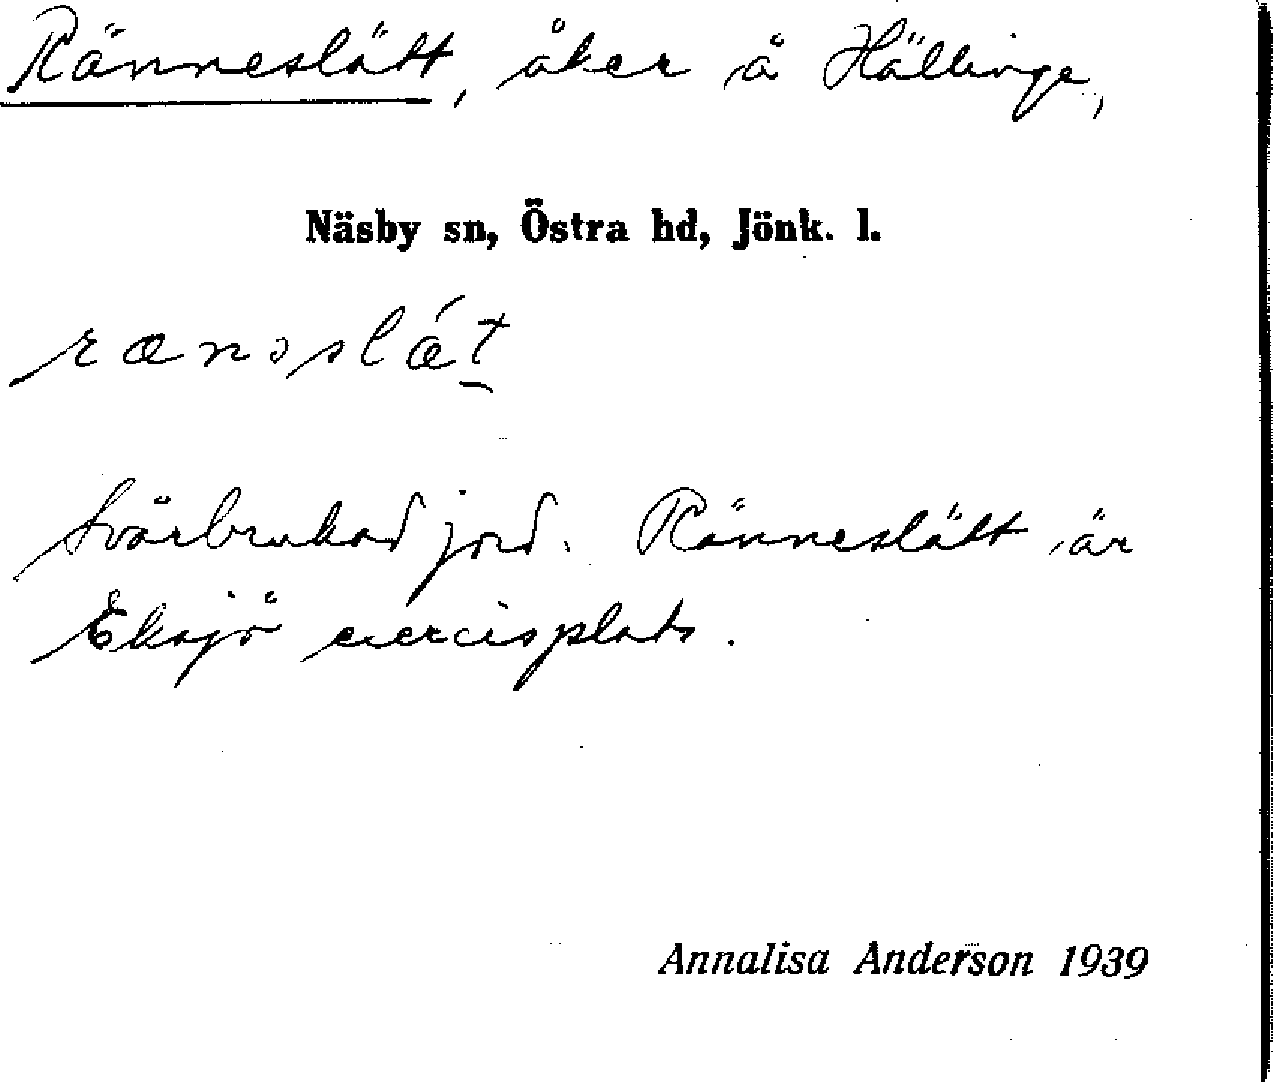 Ränneslätt, åker å Hällinge,
Näsby sn, Östra hd, Jönk. l.
rænəslǽt̲
Svårbrukad jord. Ränneslätt är
Eksjö exercisplats.
Annalisa Anderson 1939